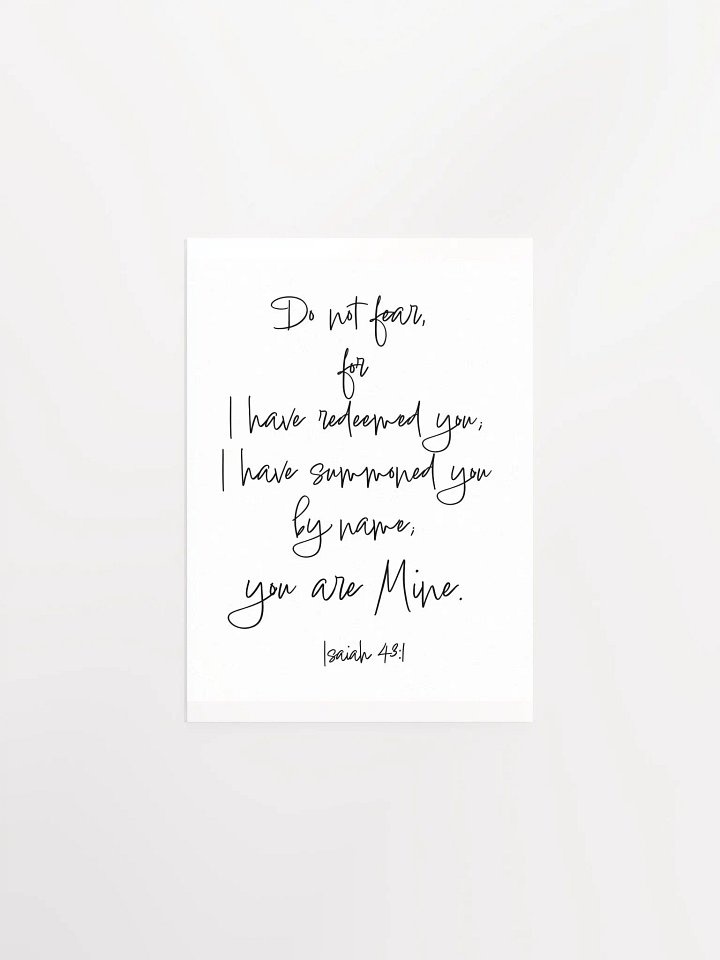 Do not fear,
for
I have redeemed you;
I have summoned you
by name;
you are Mine.
Isaiah 43:1